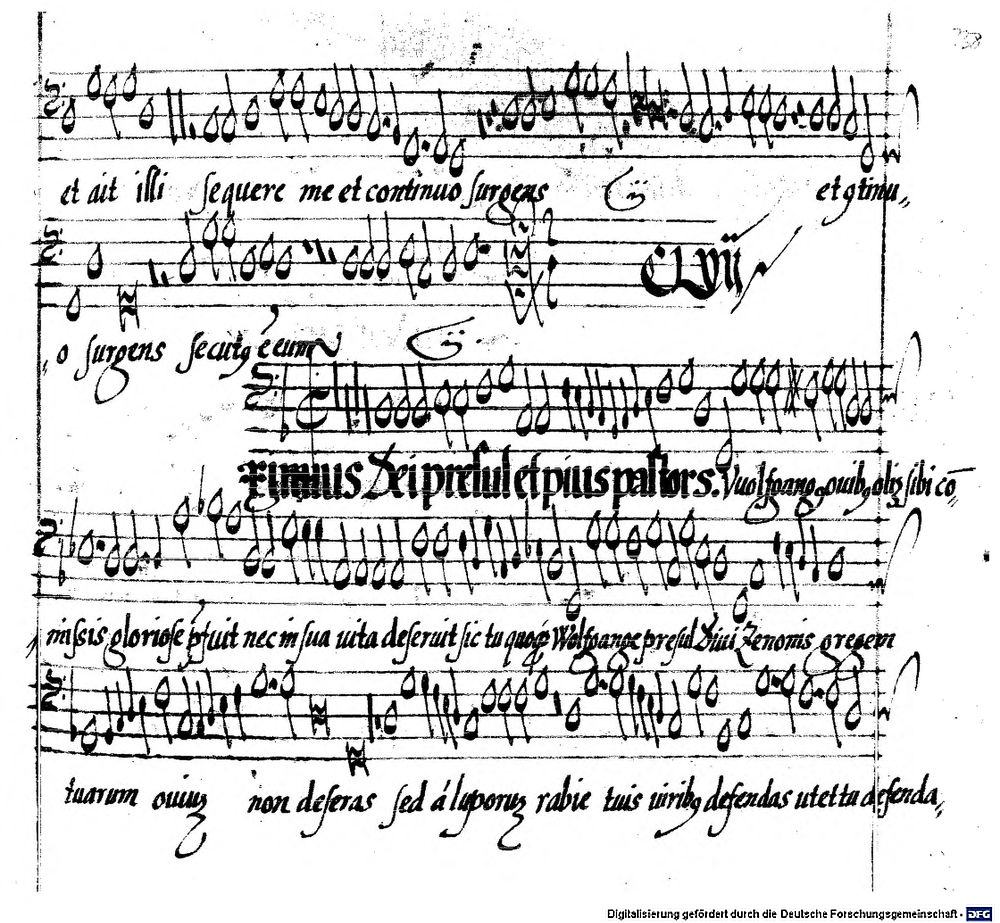 et ait illi sequere me et continuo surgens ij et 9tinu„
CLVij
„o surgens secutꝯ e eum ij.
Eximius Dei presul et pius pastors. Vuolfgangꝯ ouibꝯ olĩ sibi cō-
„missis gloriose p̃fuit nec in sua uita deseruit sic tu quoqꝫ Wolfgange presul Diui Zenonis gregem
tuarum ouiuꝫ non deseras sed á luporuꝫ rabie tuis uiribꝯ defendas ut et tu defenda„
Digitalisierung gefördert durch die Deutsche Forschungsgemeinschaft - DFG